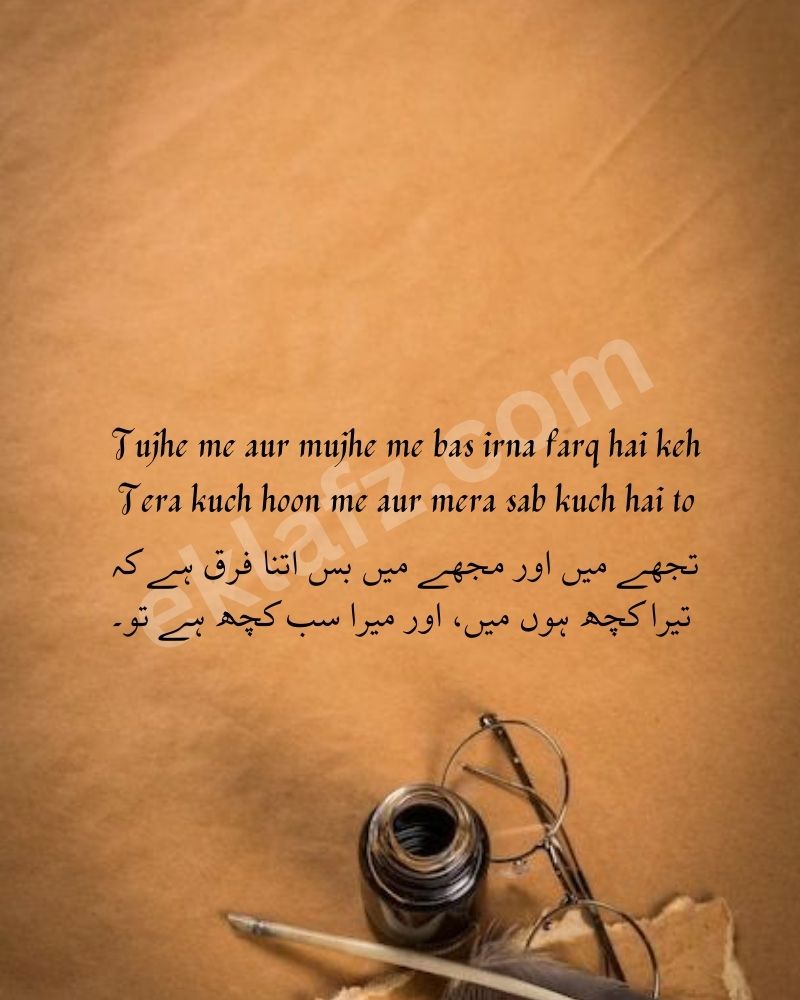 Tujhe me aur mujhe me bas irna farq hai keh
Tera kuch hoon me aur mera sab kuch hai to
تجھے میں اور مجھے میں بس اتنا فرق ہے کہ
تیرا کچھ ہوں میں، اور میرا سب کچھ ہے تو۔
eklafz.com